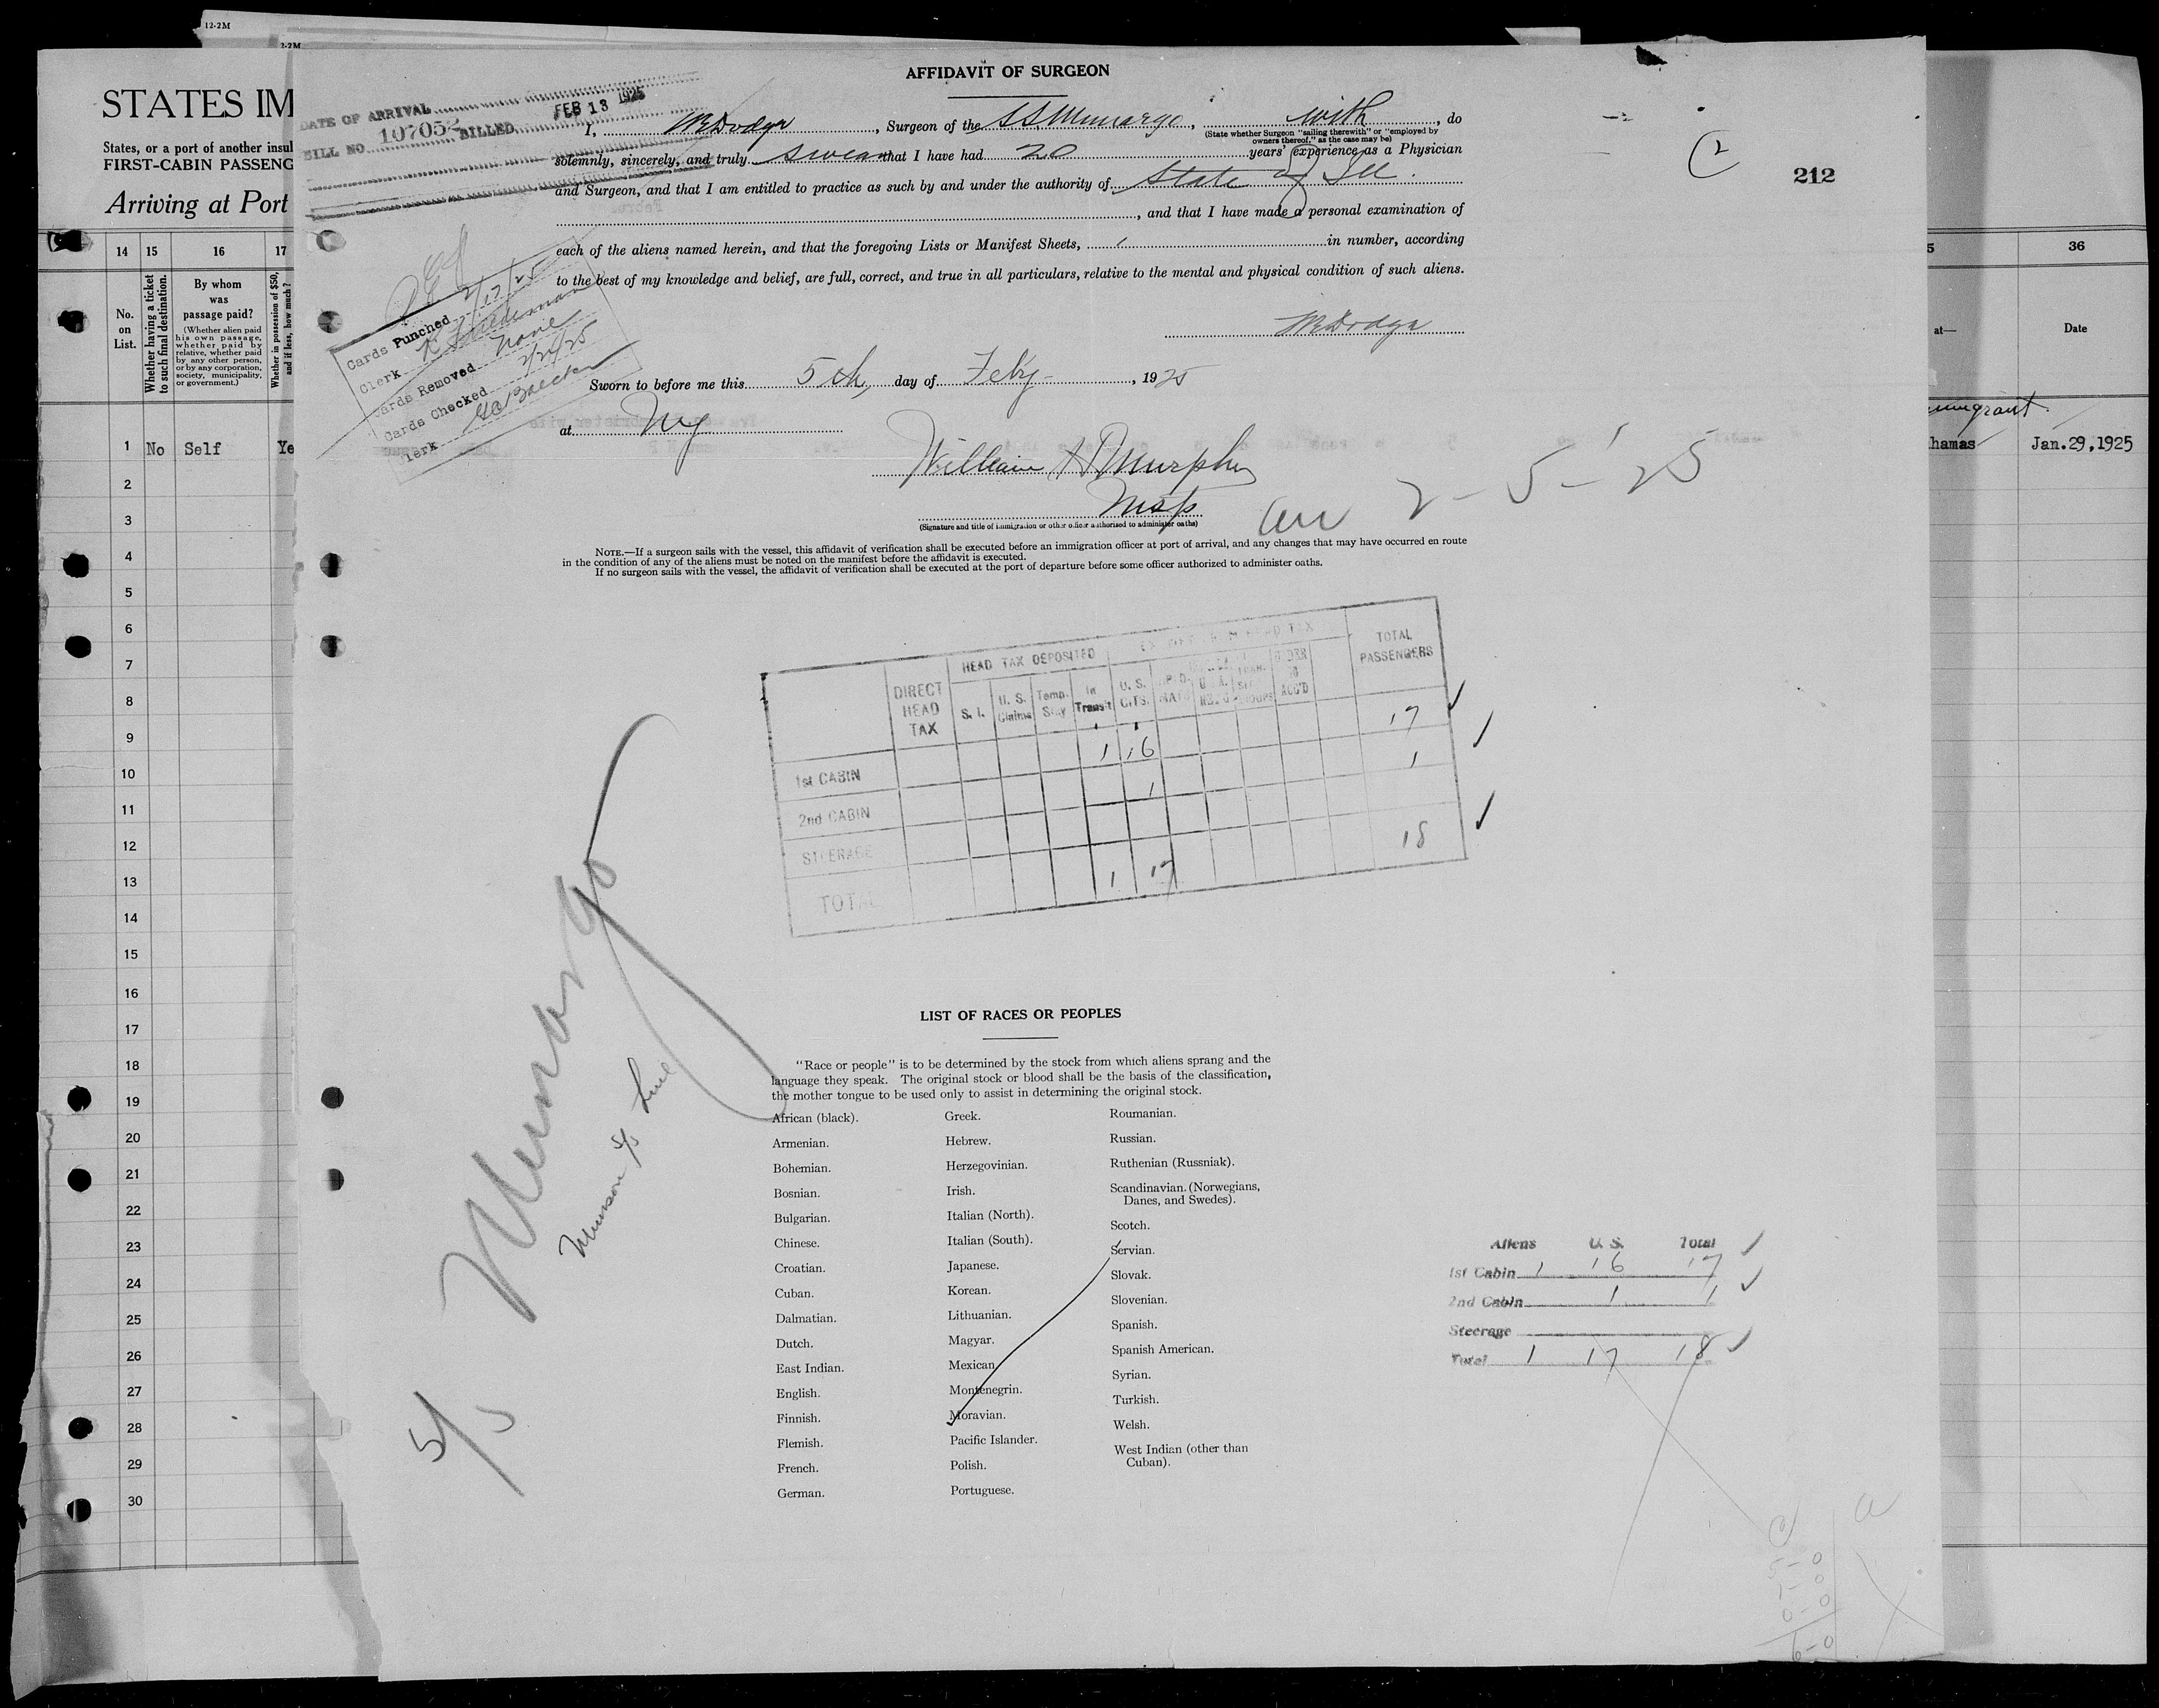 12-2M
2-2M
STATES IM
States, or a port of another insul
FIRST-CABIN PASSENG
Arriving at Port
14 15 16 17
No. on List.
Whether having a ticket to such final destination.
By whom was passage paid?
(Whether alien paid his own passage, whether paid by relative, whether paid by any other person, or by any corporation, society, municipality, or government.)
Whether in possession of $50, and if less, how much?
1 No Self Ye
2
3
4
5
6
7
8
9
10
11
12
13
14
15
16
17
18
19
20
21
22
23
24
25
26
27
28
29
30
DATE OF ARRIVAL
FEB 13 1925
BILL NO 107052 BILLED
AFFIDAVIT OF SURGEON
I, Dodge, Surgeon of the SS Munargo, with, do
(State whether Surgeon "sailing therewith" or "employed by
owners thereof," as the case may be)
solemnly, sincerely, and truly swear that I have had 20 years' experience as a Physician
and Surgeon, and that I am entitled to practice as such by and under the authority of State of Ill.
, and that I have made a personal examination of
each of the aliens named herein, and that the foregoing Lists or Manifest Sheets, 1 in number, according
to the best of my knowledge and belief, are full, correct, and true in all particulars, relative to the mental and physical condition of such aliens.
Dodge
Sworn to before me this 5th day of Feby, 1925
at NY
William A Murphy
Insp
(Signature and title of immigration or other officer authorized to administer oaths)
arr 2-5-'25
Cards Punched 2/17/25
Clerk
Cards Removed None
Cards Checked 2/20/25
Clerk
2
212
NOTE.—If a surgeon sails with the vessel, this affidavit of verification shall be executed before an immigration officer at port of arrival, and any changes that may have occurred en route
in the condition of any of the aliens must be noted on the manifest before the affidavit is executed.
If no surgeon sails with the vessel, the affidavit of verification shall be executed at the port of departure before some officer authorized to administer oaths.
DIRECT HEAD TAX
HEAD TAX DEPOSITED
S. I.
U. S. Claims
Temp. Stay
In Transit
EXEMPT FROM HEAD TAX
U. S. CITS.
UNDER 16 ACC'D
TOTAL PASSENGERS
1st CABIN 1 16 17
2nd CABIN 1 1
STEERAGE
TOTAL 1 17 18
S/S Munargo
Munson S/S Line
LIST OF RACES OR PEOPLES
"Race or people" is to be determined by the stock from which aliens sprang and the
language they speak. The original stock or blood shall be the basis of the classification,
the mother tongue to be used only to assist in determining the original stock.
African (black).
Armenian.
Bohemian.
Bosnian.
Bulgarian.
Chinese.
Croatian.
Cuban.
Dalmatian.
Dutch.
East Indian.
English.
Finnish.
Flemish.
French.
German.
Greek.
Hebrew.
Herzegovinian.
Irish.
Italian (North).
Italian (South).
Japanese.
Korean.
Lithuanian.
Magyar.
Mexican
Montenegrin.
Moravian.
Pacific Islander.
Polish.
Portuguese.
Roumanian.
Russian.
Ruthenian (Russniak).
Scandinavian. (Norwegians,
Danes, and Swedes).
Scotch.
Servian.
Slovak.
Slovenian.
Spanish.
Spanish American.
Syrian.
Turkish.
Welsh.
West Indian (other than
Cuban).
Aliens U. S. Total
1st Cabin 1 16 17
2nd Cabin 1 1
Steerage
Total 1 17 18
C a
5-0
1-0
0-0
6-0
5 36
at—
Date
mmigrant
hamas Jan.29,1925